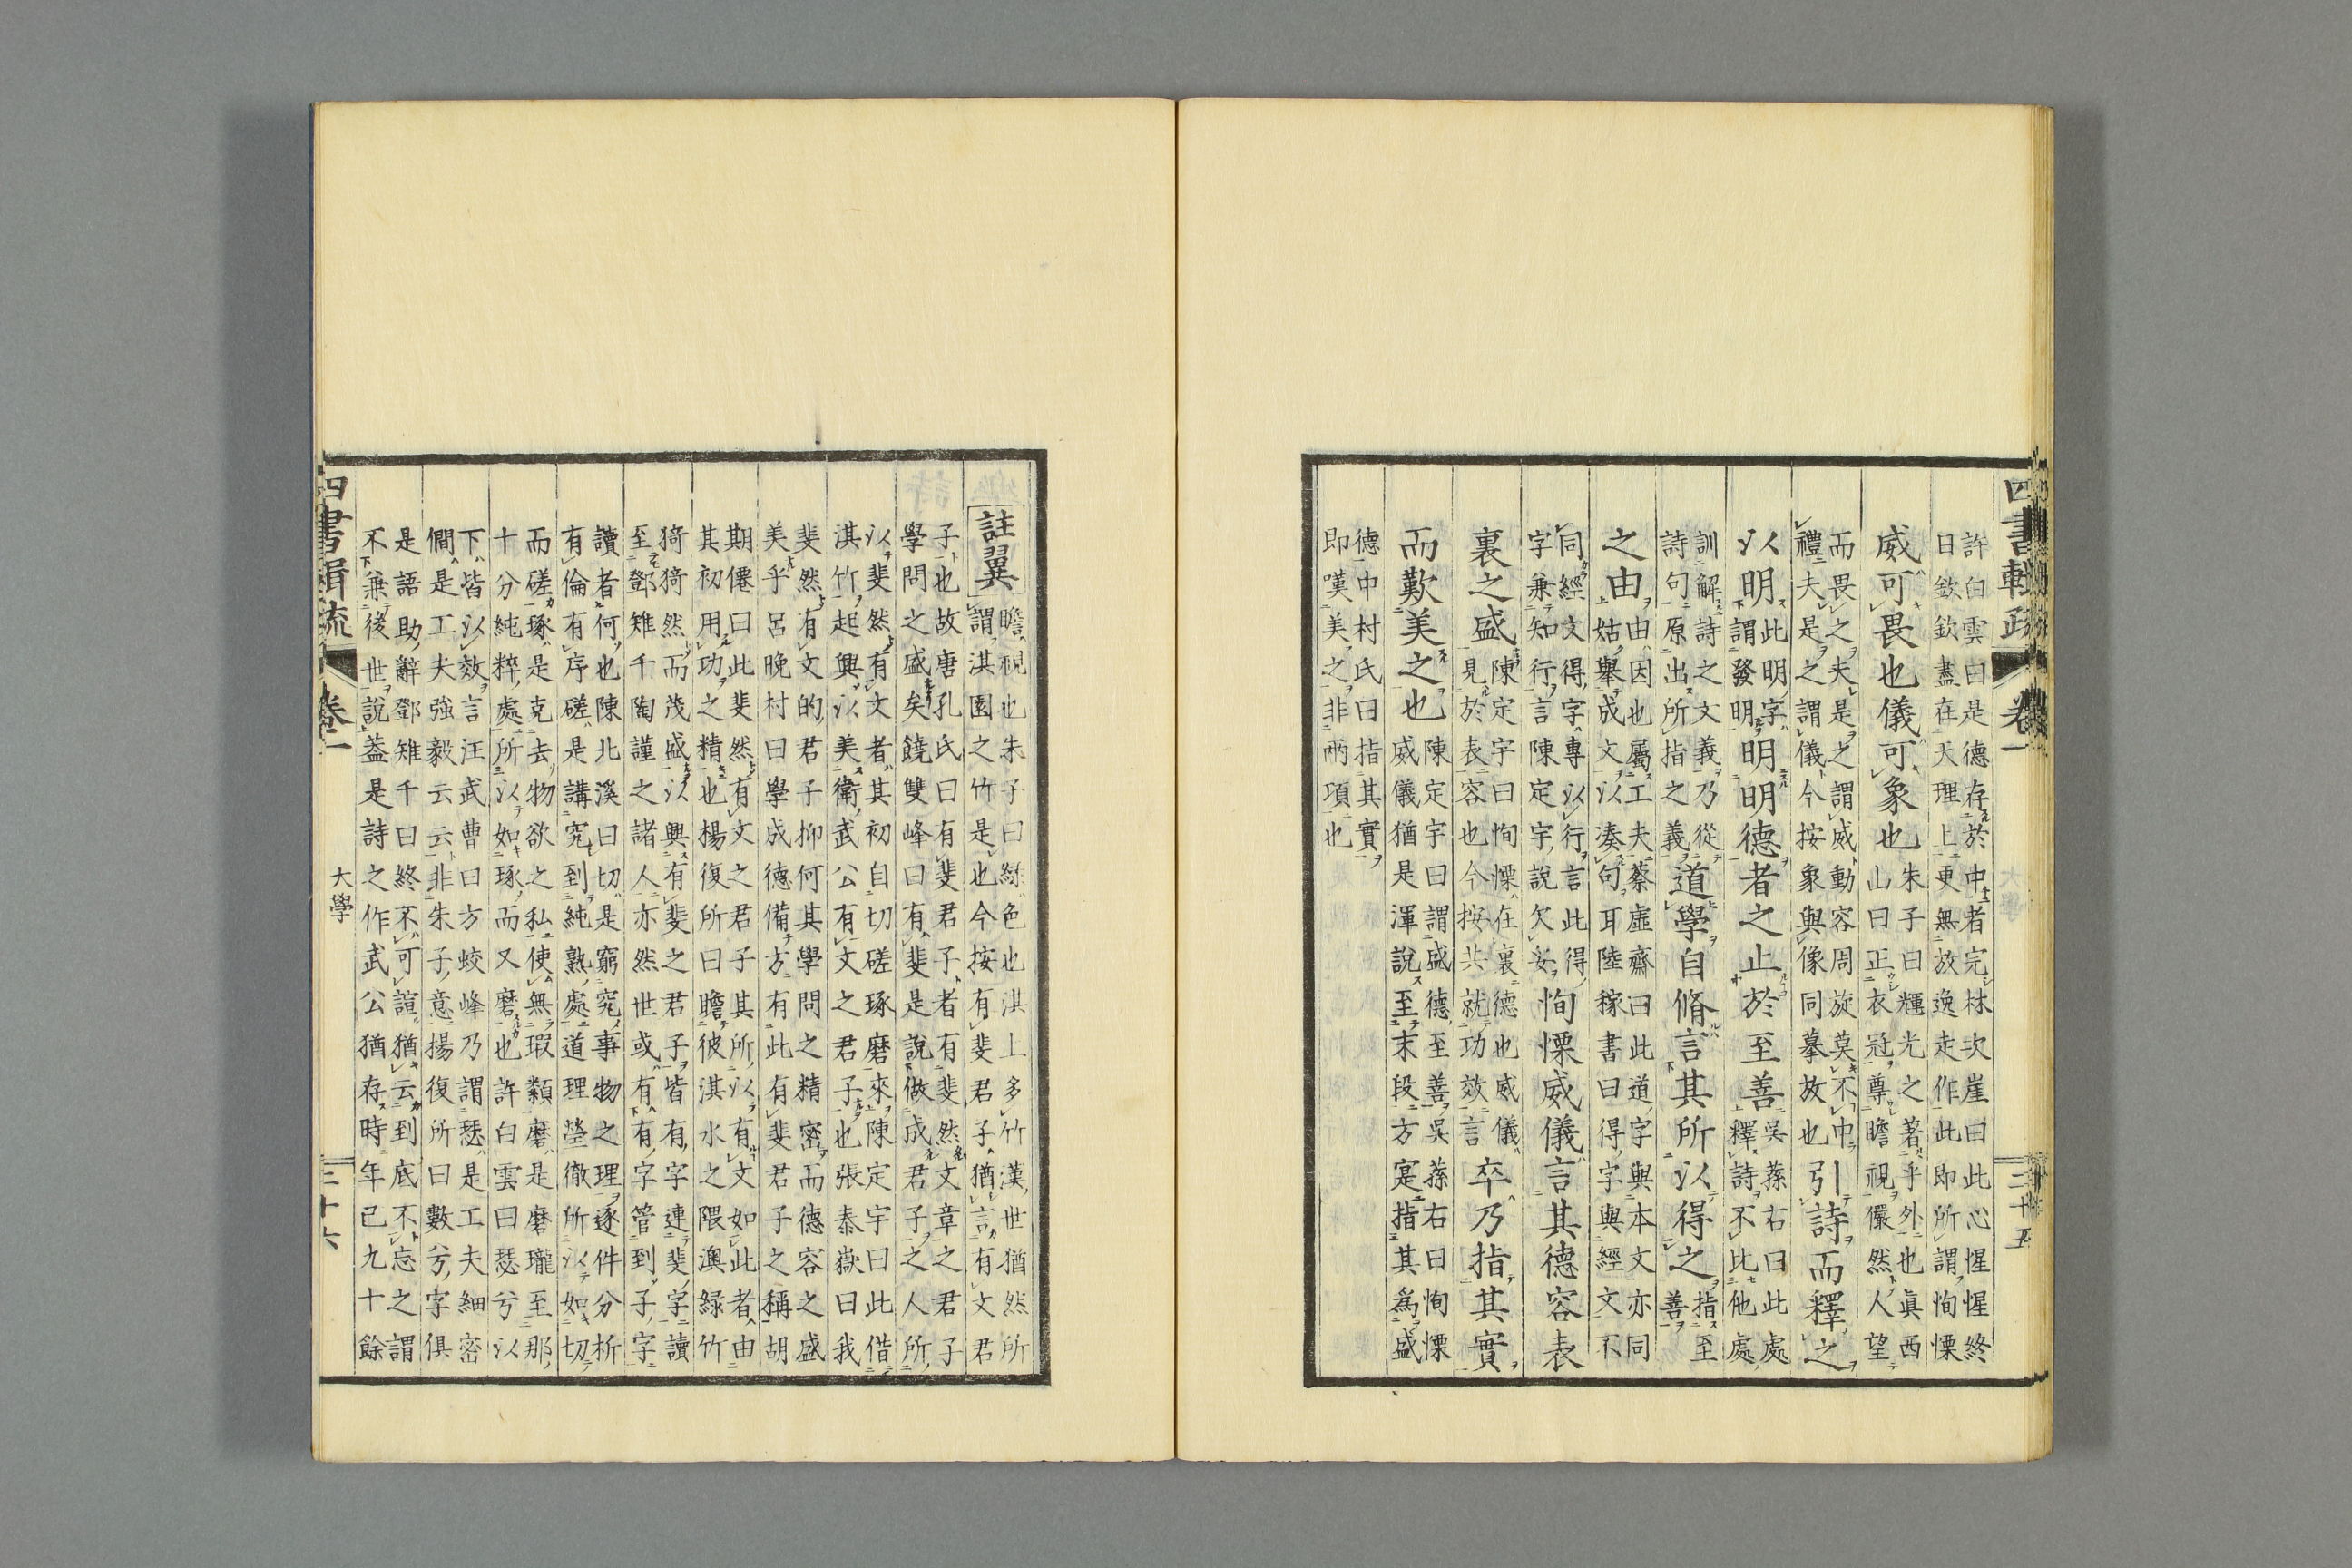 四書輯疏 卷一 大學 三十五
許白雲曰是德存於中者完林次崖曰此心惺惺終
日欽欽盡在天理上更無放逸走作此即所謂恂慄
威可畏也儀可象也
朱子曰輝光之著乎外也眞西
山曰正衣冠尊瞻視儼然人望
而畏之夫是之謂威動容周旋莫不中
禮夫是之謂儀今按象與像同摹放也
引詩而釋之
以明
此明字
謂發明
明明德者之止於至善
吳蓀右曰此處
釋詩不比他處
訓解詩之文義乃從
詩句原出所指之義
道學自脩言其所以得之
指至
善
之由
由因也屬工夫蔡虛齋曰此道字與本文亦同
姑擧成文以湊句耳陸稼書曰得字與經文不
同經文得字專以行言此得
字兼知行言陳定宇說欠妥
恂慄威儀言其德容表
裏之盛
陳定宇曰恂慄在裏德也威儀
見於表容也今按共就功效言
卒乃指其實
而歎美之也
陳定宇曰謂盛德至善吳蓀右曰恂慄
威儀猶是渾說至末段方寔指其爲盛
德中村氏曰指其實
即嘆美之非兩項也
註翼
瞻視也朱子曰綠色也淇上多竹漢世猶然所
謂淇園之竹是也今按有斐君子猶言有文君
子也故唐孔氏曰有斐君子者有斐然文章之君子
學問之盛矣饒雙峰曰有斐是說做成君子之人所
以斐然有文者其初自切磋琢磨來陳定宇曰此借
淇竹起興以美衛武公有文之君子也張泰嶽曰我
斐然有文的君子抑何其學問之精密而德容之盛
美乎呂晚村曰學成德備方有此有斐君子之稱胡
期僊曰此斐然有文之君子其所以有文如此者由
其初用功之精也楊復所曰瞻彼淇水之隈澳綠竹
猗猗然而茂盛以興有斐之君子皆有字連斐字讀
至鄧雉千陶謹之諸人亦然世或有有字管到子字
讀者何也陳北溪曰切是窮究事物之理逐件分析
有倫有序磋是講究到純熟處道理瑩徹所以如切
而磋琢是克去物欲之私使無瑕纇磨是磨瓏至那
十分純粹處所以如琢而又磨也許白雲曰瑟兮以
下皆以效言汪武曹曰方蛟峰乃謂瑟是工夫細密
僩是工夫強毅云云非朱子意楊復所曰數兮字俱
是語助辭鄧雉千曰終不可諠猶云到底不忘之謂
不兼後世說蓋是詩之作武公猶存時年已九十餘
四書輯疏 卷一 大學 三十六